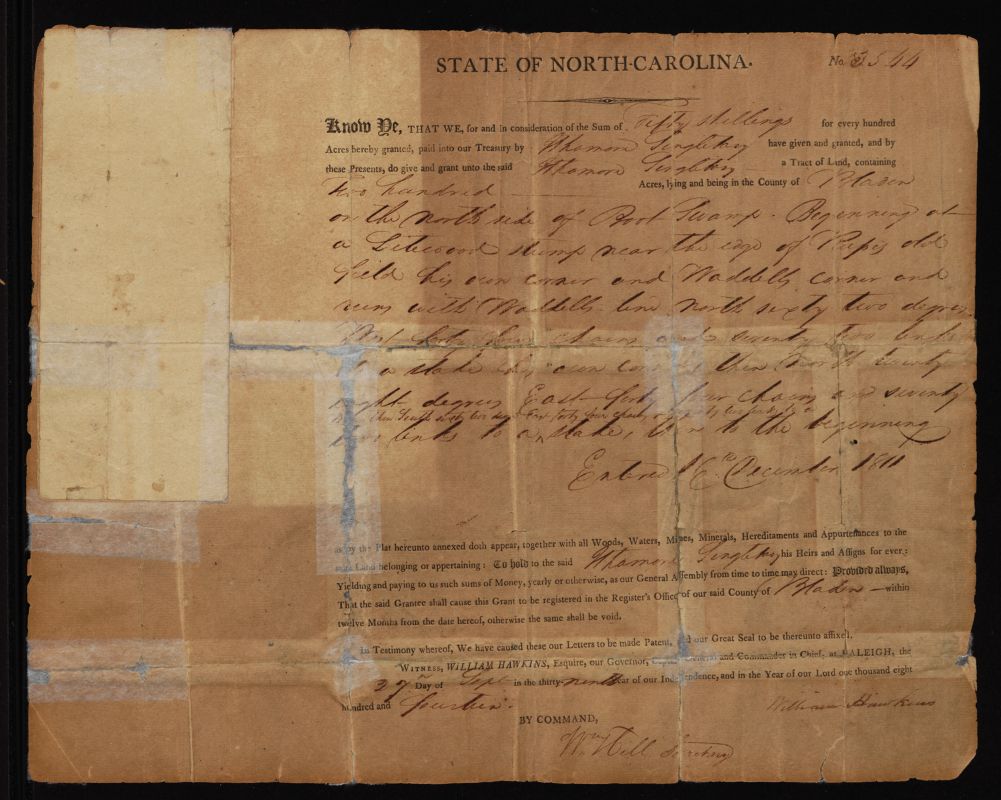 STATE OF NORTH-CAROLINA.
No. 3544
Know Ye, THAT WE, for and in consideration of the Sum of Fifty shillings for every hundred
Acres hereby granted, paid into our Treasury by Singletary have given and granted, and by
these Presents, do give and grant unto the said Singletary a Tract of Land, containing
two hundred Acres, lying and being in the County of Bladen
on the North side of Swamp. Beginning at
a Litewood stump near the edge of old
field his own corner and Waddells corner and
runs with Waddells line North sixty two degrees
West forty four chains and seventy two links
to a stake his own corner then North twenty
eight degrees East forty four chains and seventy
then South sixty two degs East forty four chains &
two links to a stake, to the beginning
Entered 16th December 1811
as by the Plat hereunto annexed doth appear, together with all Woods, Waters, Mines, Minerals, Hereditaments and Appurtenances to the
said Land belonging or appertaining: To hold to the said Singletary his Heirs and Assigns for ever:
Yielding and paying to us such sums of Money, yearly or otherwise, as our General Assembly from time to time may direct: Provided always,
That the said Grantee shall cause this Grant to be registered in the Register's Office of our said County of Bladen within
twelve Months from the date hereof, otherwise the same shall be void.
In Testimony whereof, We have caused these our Letters to be made Patent, and our Great Seal to be thereunto affixed.
WITNESS, WILLIAM HAWKINS, Esquire, our Governor, Captain General and Commander in Chief, at RALEIGH, the
27th Day of Sept in the thirty-ninth Year of our Independence, and in the Year of our Lord one thousand eight
hundred and fourteen.
William Hawkins
BY COMMAND,
Wm Hill Secretary